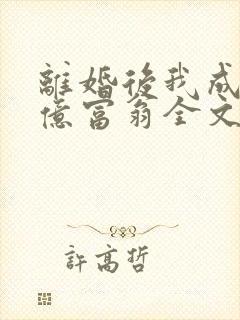 離婚後我成
億富翁全文
許高哲